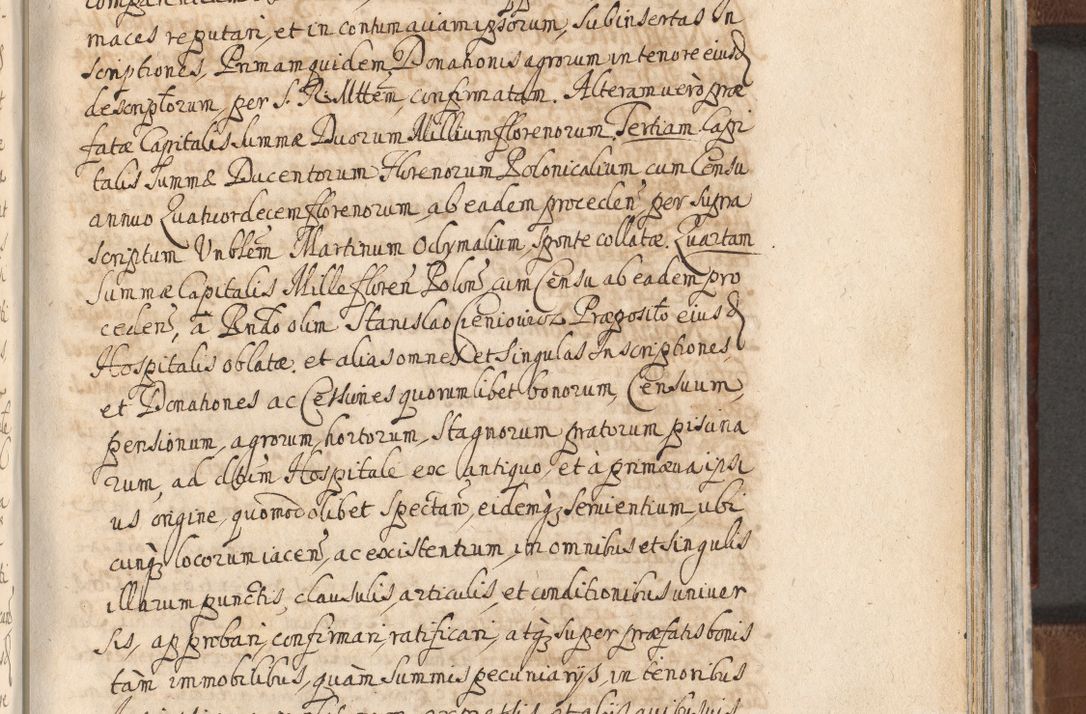 maces reputari, et in contumaciam ipsorum, subinsertas In
scriptiones, Primam quidem Donationis agrorum in tenore eiusd
descriptorum, per S. R. Mttem, confirmatam. Alteram verò præ
fatæ Capitalis summæ Duorum Millium florenorum. Tertiam Capi
talis summæ Ducentorum Florenorum Polonicalium cum Censu
annuo Quatuordecem florenorum ab eadem proceden per supra
scriptum Unblem Martinum Oclymalium, sponte collatæ. Quartam
summæ Capitalis Mille floren Polon, cum Censu ab eadem pro
ceden, à Rndo olim Stanislao Cieniowicz Præposito eiusd
Hospitalis oblatæ, et alias omnes et singulas Inscriptiones,
et Donationes ac Cessiones quorumlibet bonorum, Censuum,
pensionum, agrorum, hortorum, stagnorum pratorum piscina
rum, ad dictum Hospitale ex antiquo, et à primæva ipsi
us origine, quomodolibet spectan, eidemq servientium, ubi
cunq locorum iacen, ac existentium, in omnibus et singulis
illarum punctis, clausulis, articulis, et conditionibus univer
sis, approbari, confirmari, ratificari, atq super præfatis bonis
tàm immobilibus, quàm summis pecuniarijs, in tenoribus